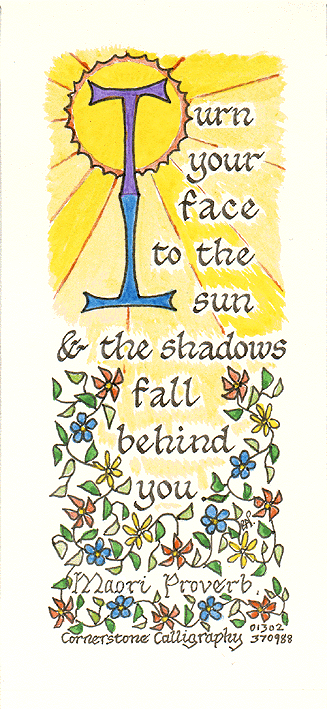 Turn
your
face
to the
sun
& the shadows
fall
behind
you.
Maori Proverb.
Cornerstone Calligraphy 01302 370988